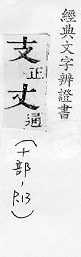 經典文字辨證書
支正
𠦜通
(十部,P.13)